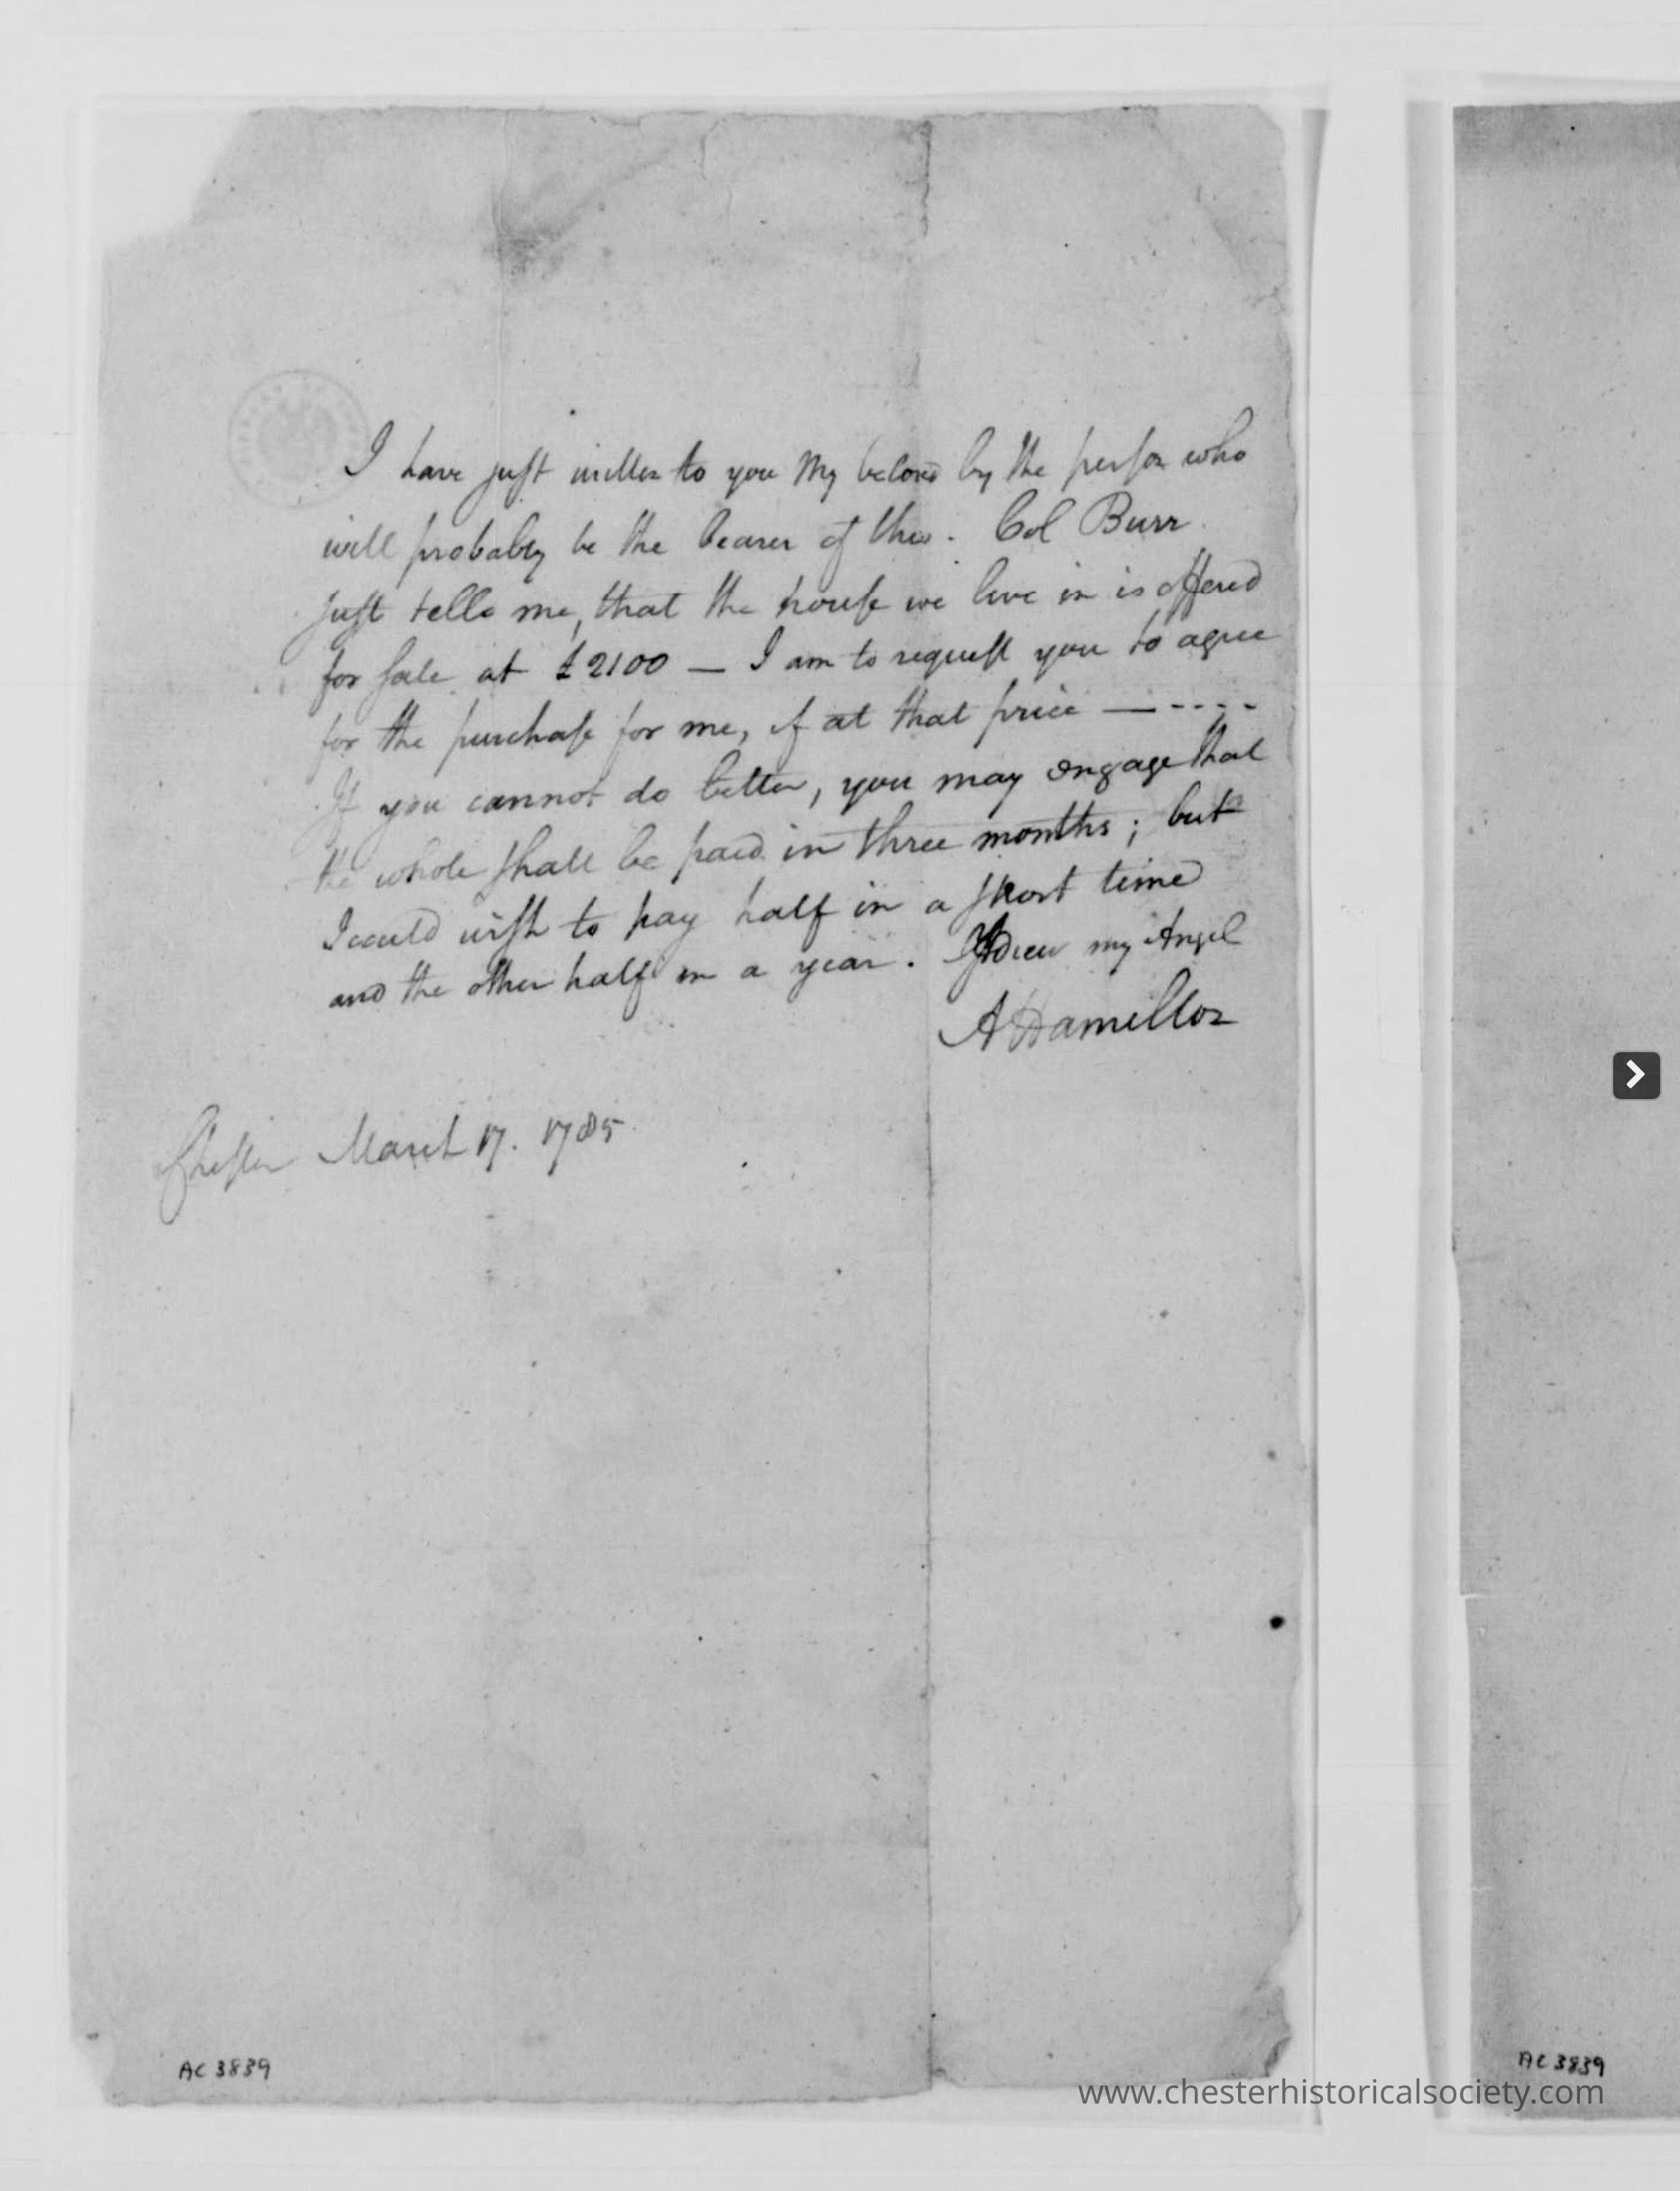 I have just written to you My beloved by the person who
will probably be the bearer of this. Col Burr
just tells me, that the house we live in is offered
for sale at £2100 — I am to request you to agree
for the purchase for me, if at that price — - - - -
If you cannot do better, you may engage that
the whole shall be paid in three months; but
I could wish to pay half in a short time
and the other half in a year. Adieu my Angel
A Hamilton
Chester March 17. 1785
AC 3839
AC 3839
www.chesterhistoricalsociety.com